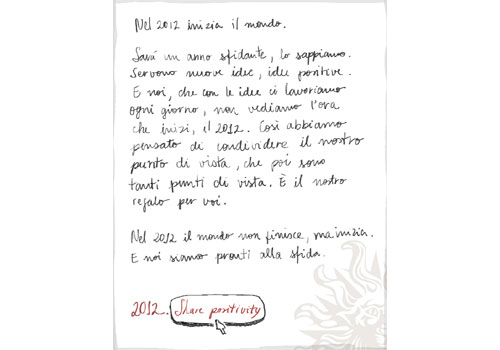 Nel 2012 inizia il mondo.
Sarà un anno sfidante, lo sappiamo.
Servono nuove idee, idee positive.
E noi, che con le idee ci lavoriamo
ogni giorno, non vediamo l'ora
che inizi, il 2012. Così abbiamo
pensato di condividere il nostro
punto di vista, che poi sono
tanti punti di vista. È il nostro
regalo per voi.
Nel 2012 il mondo non finisce, ma inizia.
E noi siamo pronti alla sfida.
2012. Share positivity